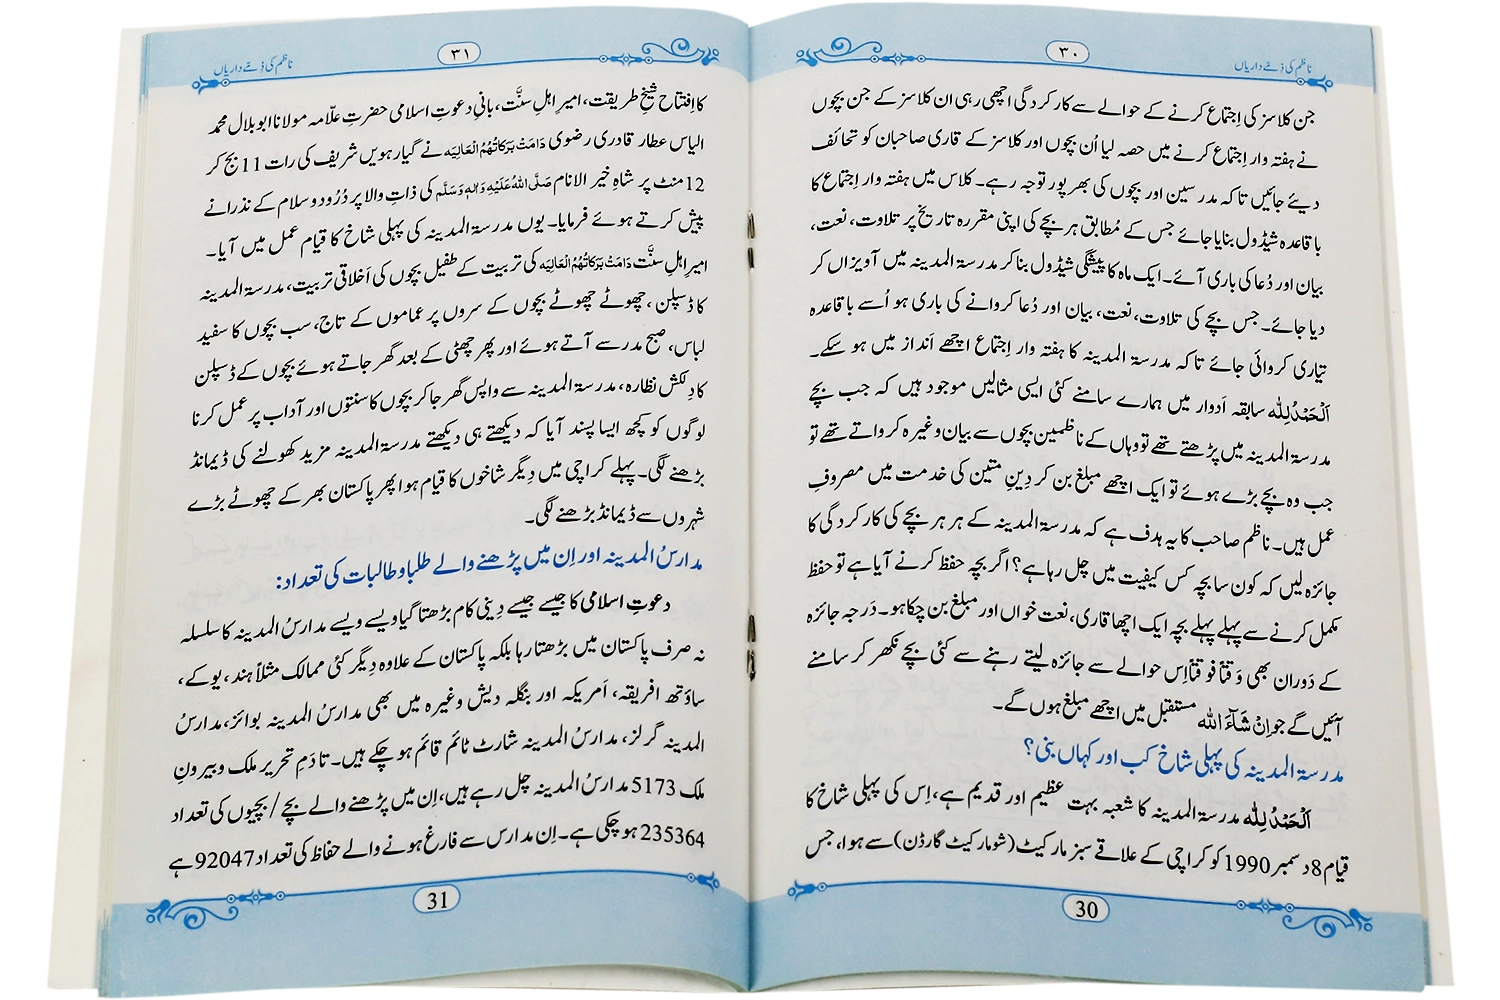 ناظم کی ذمے داریاں
٣٠
جن کلاسز کی اِجتماع کرنے کے حوالے سے کارکردگی اچھی رہی ان کلاسز کے جن بچوں
نے ہفتہ وار اِجتماع کرنے میں حصہ لیا اُن بچوں اور کلاسز کے قاری صاحبان کو تحائف
دیئے جائیں تاکہ مدرسین اور بچوں کی بھرپور توجہ رہے۔ کلاس میں ہفتہ وار اِجتماع کا
باقاعدہ شیڈول بنایا جائے جس کے مُطابق ہر بچے کی اپنی مقررہ تاریخ پر تلاوت، نعت،
بیان اور دُعا کی باری آئے۔ ایک ماہ کا پیشگی شیڈول بنا کر مدرسۃ المدینہ میں آویزاں کر
دیا جائے۔ جس بچے کی تلاوت، نعت، بیان اور دُعا کروانے کی باری ہو اُسے باقاعدہ
تیاری کروائی جائے تاکہ مدرسۃ المدینہ کا ہفتہ وار اِجتماع اچھے اَنداز میں ہو سکے۔
اَلْحَمْدُلِلّٰه سابقہ اَدوار میں ہمارے سامنے کئی ایسی مثالیں موجود ہیں کہ جب بچے
مدرسۃ المدینہ میں پڑھتے تھے تو وہاں کے ناظمین بچوں سے بیان وغیرہ کرواتے تھے تو
جب وہ بچے بڑے ہوئے تو ایک اچھے مبلغ بن کر دِینِ متین کی خدمت میں مصروفِ
عمل ہیں۔ ناظم صاحب کا یہ ہدف ہے کہ مدرسۃ المدینہ کے ہر ہر بچے کی کارکردگی کا
جائزہ لیں کہ کون سا بچہ کس کیفیت میں چل رہا ہے؟ اگر بچہ حفظ کرنے آیا ہے تو حفظ
مکمل کرنے سے پہلے پہلے بچہ ایک اچھا قاری، نعت خواں اور مبلغ بن چکا ہو۔ دَرجہ جائزہ
کے دَوران بھی وَقتاً فوقتاً اِس حوالے سے جائزہ لیتے رہنے سے کئی بچے نکھر کر سامنے
آئیں گے جو اِنْ شَآءَ اللّٰه مستقبل میں اچھے مبلغ ہوں گے۔
مدرسۃ المدینہ کی پہلی شاخ کب اور کہاں بنی؟
اَلْحَمْدُ لِلّٰه مدرسۃ المدینہ کا شعبہ بہت عظیم اور قدیم ہے، اِس کی پہلی شاخ کا
قیام 8 دسمبر 1990 کو کراچی کے علاقے سبز مارکیٹ (شو مارکیٹ گارڈن) سے ہوا، جس
30
ناظم کی ذمے داریاں
٣١
کا اِفتتاح شیخِ طریقت، امیرِ اہلِ سنَّت، بانیِ دعوتِ اسلامی حضرتِ علّامہ مولانا ابو بلال محمد
الیاس عطار قادری رضوی دَامَتْ بَرَكَاتُهُمُ الْعَالِيَه نے گیارہویں شریف کی رات 11 بج کر
12 منٹ پر شاہِ خیرُ الانام صَلَّى اللهُ عَلَيْهِ وَاٰلِهٖ وَسَلَّم کی ذاتِ والا پر دُرُود و سلام کے نذرانے
پیش کرتے ہوئے فرمایا۔ یوں مدرسۃ المدینہ کی پہلی شاخ کا قیام عمل میں آیا۔
امیرِ اہلِ سنَّت دَامَتْ بَرَكَاتُهُمُ الْعَالِيَه کی تربیت کے طفیل بچوں کی اَخلاقی تربیت، مدرسۃ المدینہ
کا ڈسپلن، چھوٹے چھوٹے بچوں کے سروں پر عماموں کے تاج، سب بچوں کا سفید
لباس، صبح مدرسے آتے ہوئے اور پھر چھٹی کے بعد گھر جاتے ہوئے بچوں کے ڈسپلن
کا دِلکش نظارہ، مدرسۃ المدینہ سے واپس گھر جا کر بچوں کا سنتوں اور آداب پر عمل کرنا
لوگوں کو کچھ ایسا پسند آیا کہ دیکھتے ہی دیکھتے مدرسۃ المدینہ مزید کھولنے کی ڈیمانڈ
بڑھنے لگی۔ پہلے کراچی میں دِیگر شاخوں کا قیام ہوا پھر پاکستان بھر کے چھوٹے بڑے
شہروں سے ڈیمانڈ بڑھنے لگی۔
مدارسُ المدینہ اور اِن میں پڑھنے والے طلبا و طالبات کی تعداد:
دعوتِ اسلامی کا جیسے جیسے دِینی کام بڑھتا گیا ویسے ویسے مدارسُ المدینہ کا سلسلہ
نہ صرف پاکستان میں بڑھتا رہا بلکہ پاکستان کے علاوہ دِیگر کئی ممالک مثلاً ہند، یوکے،
ساؤتھ افریقہ، اَمریکہ اور بنگلہ دیش وغیرہ میں بھی مدارسُ المدینہ بوائز، مدارسُ
المدینہ گرلز، مدارسُ المدینہ شارٹ ٹائم قائم ہو چکے ہیں۔ تادَمِ تحریر ملک و بیرونِ
ملک 5173 مدارسُ المدینہ چل رہے ہیں، اِن میں پڑھنے والے بچے / بچیوں کی تعداد
235364 ہو چکی ہے۔ اِن مدارس سے فارغ ہونے والے حفاظ کی تعداد 92047 ہے
31